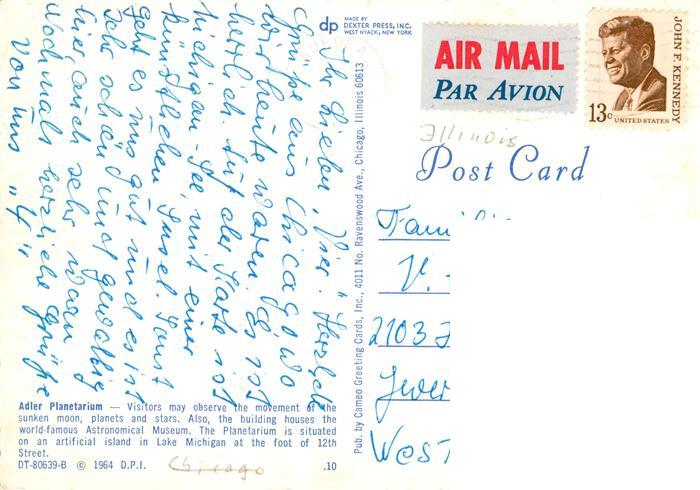 Ihr lieben „Vier." Herzlich
Grüße aus Chicago wo
wir heute waren. Es ist
herrlich. Auf der Karte ist
Michigan-See, mit einer
künstlichen Insel. Sonst
geht es uns gut und es ist
sehr schön und gewaltig
hier auch sehr warm
Nochmals herzliche Grüße
von uns „4"
dp MADE BY
DEXTER PRESS, INC.
WEST NYACK, NEW YORK
Adler Planetarium — Visitors may observe the movement of the
sunken moon, planets and stars. Also, the building houses the
world-famous Astronomical Museum. The Planetarium is situated
on an artificial island in Lake Michigan at the foot of 12th
Street.
DT-80639-B © 1964 D.P.I.
Chicago
.10
Pub. by Cameo Greeting Cards, Inc., 4011 No. Ravenswood Ave., Chicago, Illinois 60613
AIR MAIL
PAR AVION
JOHN F. KENNEDY
13c UNITED STATES
Illinois
Post Card
Fami
V.
2103
Jever
WEST